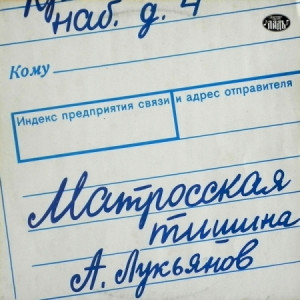 наб. д. 4
Кому
Индекс предприятия связи и адрес отправителя
Матросская
тишина
А. Лукьянов